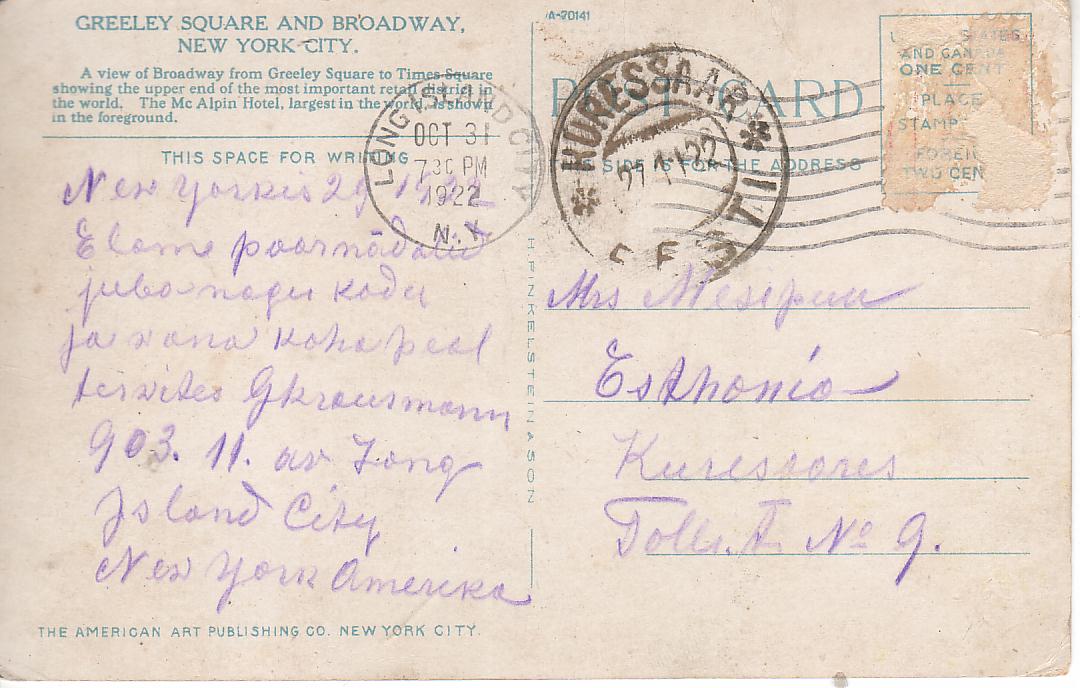 GREELEY SQUARE AND BROADWAY,
NEW YORK CITY.
A view of Broadway from Greeley Square to Times Square
showing the upper end of the most important retail district in
the world. The Mc Alpin Hotel, largest in the world, is shown
in the foreground.
THIS SPACE FOR WRITING
New Yorkis 29
Elame
juba nagu kodu
ja vana koha peal
tervites GKrausmann
903. 11. av Long
Island City
New York Amerika
THE AMERICAN ART PUBLISHING CO. NEW YORK CITY.
H. FINKELSTEIN & SON
A-70141
POST CARD
THIS SIDE IS FOR THE ADDRESS
STATES
AND CANADA
ONE CENT
PLACE
STAMP
FOREIGN
TWO CEN
LONG ISLAND CITY
OCT 31
730 PM
1922
N.Y.
KURESSAAR
EESTI
Mrs Mesipuu
Esthonia
Kuressares
No 9.